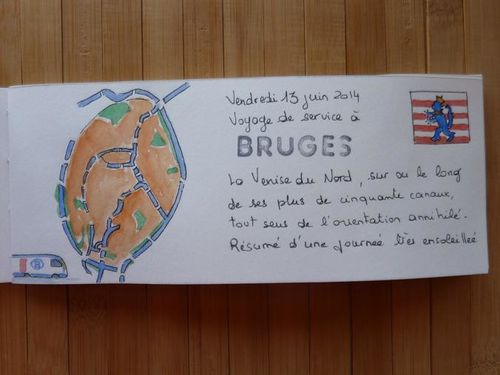 Vendredi 13 juin 2014
Voyage de service à
BRUGES
La Venise du Nord, sur ou le long
de ses plus de cinquante canaux,
tout sens de l'orientation annihilé.
Résumé d'une journée très ensoleillée